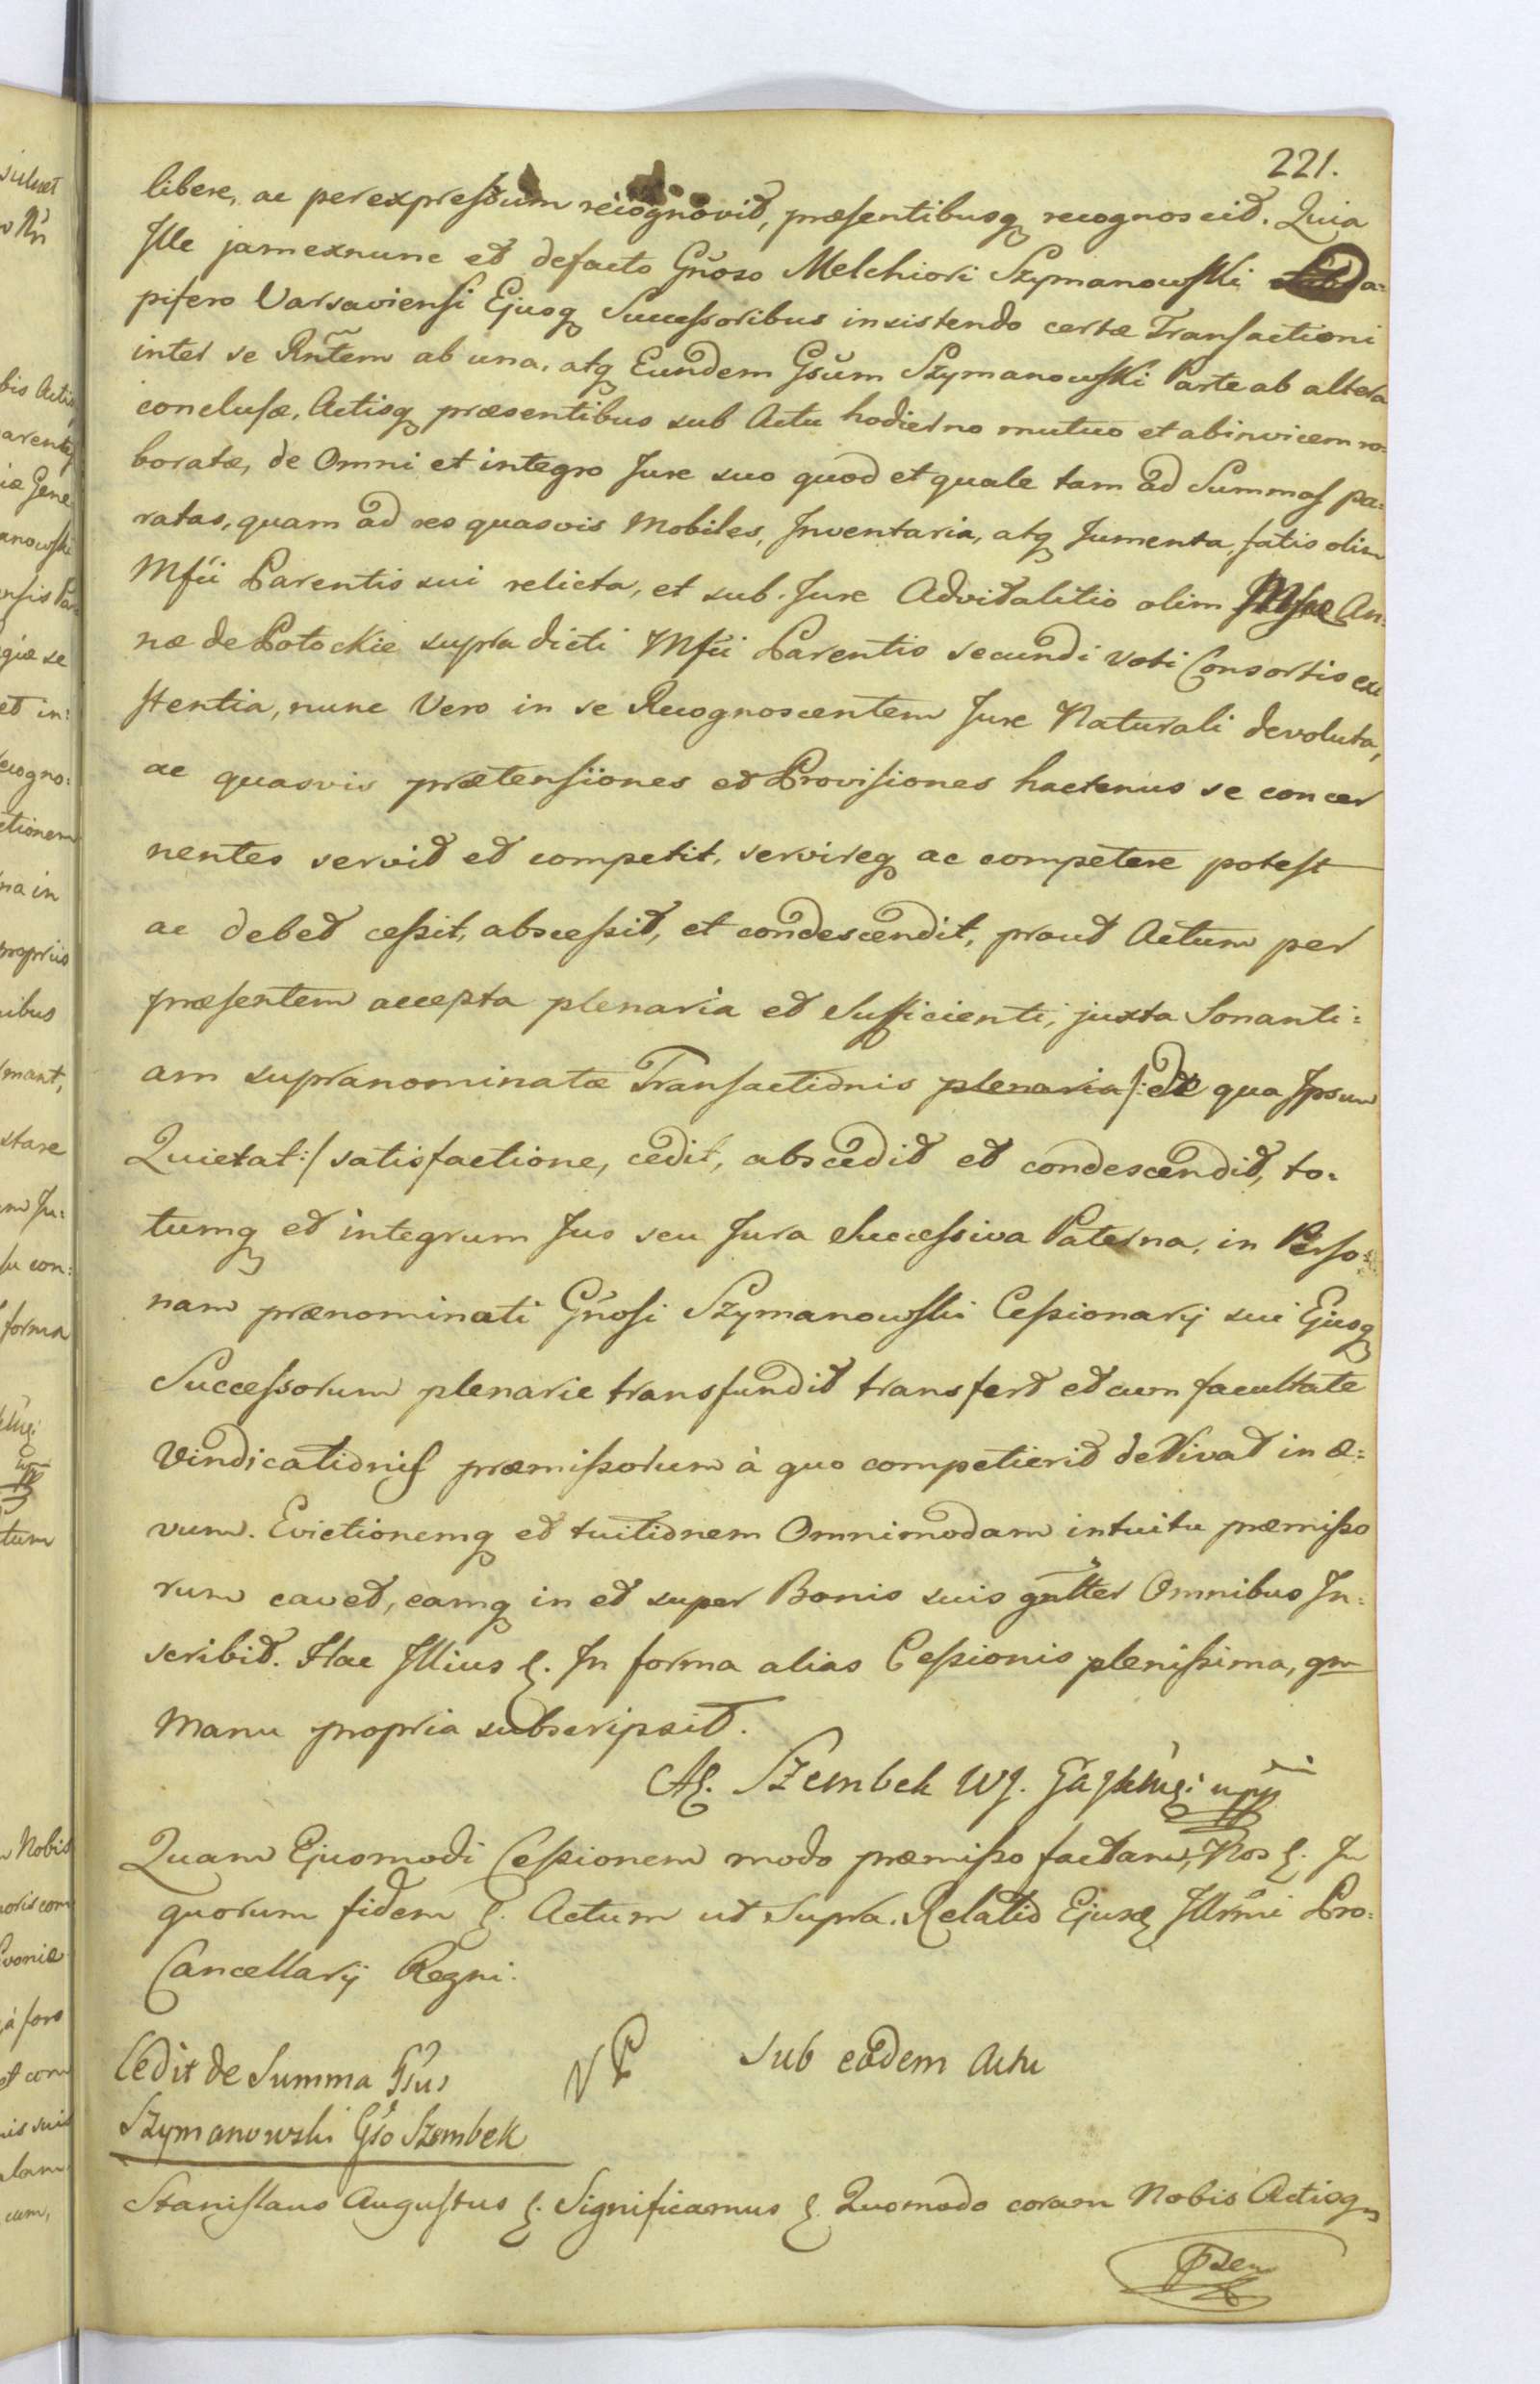 221.
libere, ac per expressum recognovit, præsentibusq recognoscit. Quia
Ille jam exnunc et defacto Gnoso Melchiori Szymanowski Subda=
pifero Varsaviensi Ejusq Successoribus insistendo certæ Transactioni
inter se Rntem ab una, atq Eundem Gsum Szymanowski Parte ab altera
conclusæ, Actisq præsentibus sub Actu hodierno mutuo et abinvicem ro=
boratæ, de Omni et integro Jure suo quod et quale tam ad Summas pa=
ratas, quam ad res quasvis Mobiles, Inventaria, atq Jumenta, fatis olim
Mfci Parentis sui relicta, et sub Jure Advitalitio olim Mfcæ An=
næ de Potockie supradicti Mfci Parentis secundi voti Consortis exi
stentia, nunc Vero in se Recognoscentem Jure Naturali devoluta,
ac quasvis prætensiones et Provisiones hactenus se concer
nentes servit et competit, servireq ac competere potest
ac debet cessit, abscessit, et condescendit, prout Actum per
præsentem accepta plenaria et Sufficienti, juxta Sonanti=
am supranominatæ Transactionis plenaria /: de qua Ipsum
Quietat :/ satisfactione, cedit, abscedit et condescendit, to=
tumq et integrum Jus seu Jura Successiva Paterna, in Perso=
nam prænominati Gnosi Szymanowski Cessionarij sui Ejusq
Successorum plenarie transfundit transfert et cum facultate
Vindicationis præmissorum à quo competierit derivat in æ=
vum. Evictionemq et tuitionem Omnimodam intuitu præmisso
rum cavet, eamq in et super Bonis suis gnlter Omnibus In=
scribit. Hac Illius &. In forma alias Cessionis plenissima, qm
Manu propria subscripsit.
Szembek
Quam Ejusmodi Cessionem modo præmisso factam, Nos &. In
quorum fidem &. Actum ut Supra. Relatio Ejusd Illrmi Pro=
Cancellarij Regni.
Cedit de Summa Gsus
Szymanowski Gso Szembek
Sub eodem Actu
Stanislaus Augustus &. Significamus &. Quomodo coram Nobis Actisq